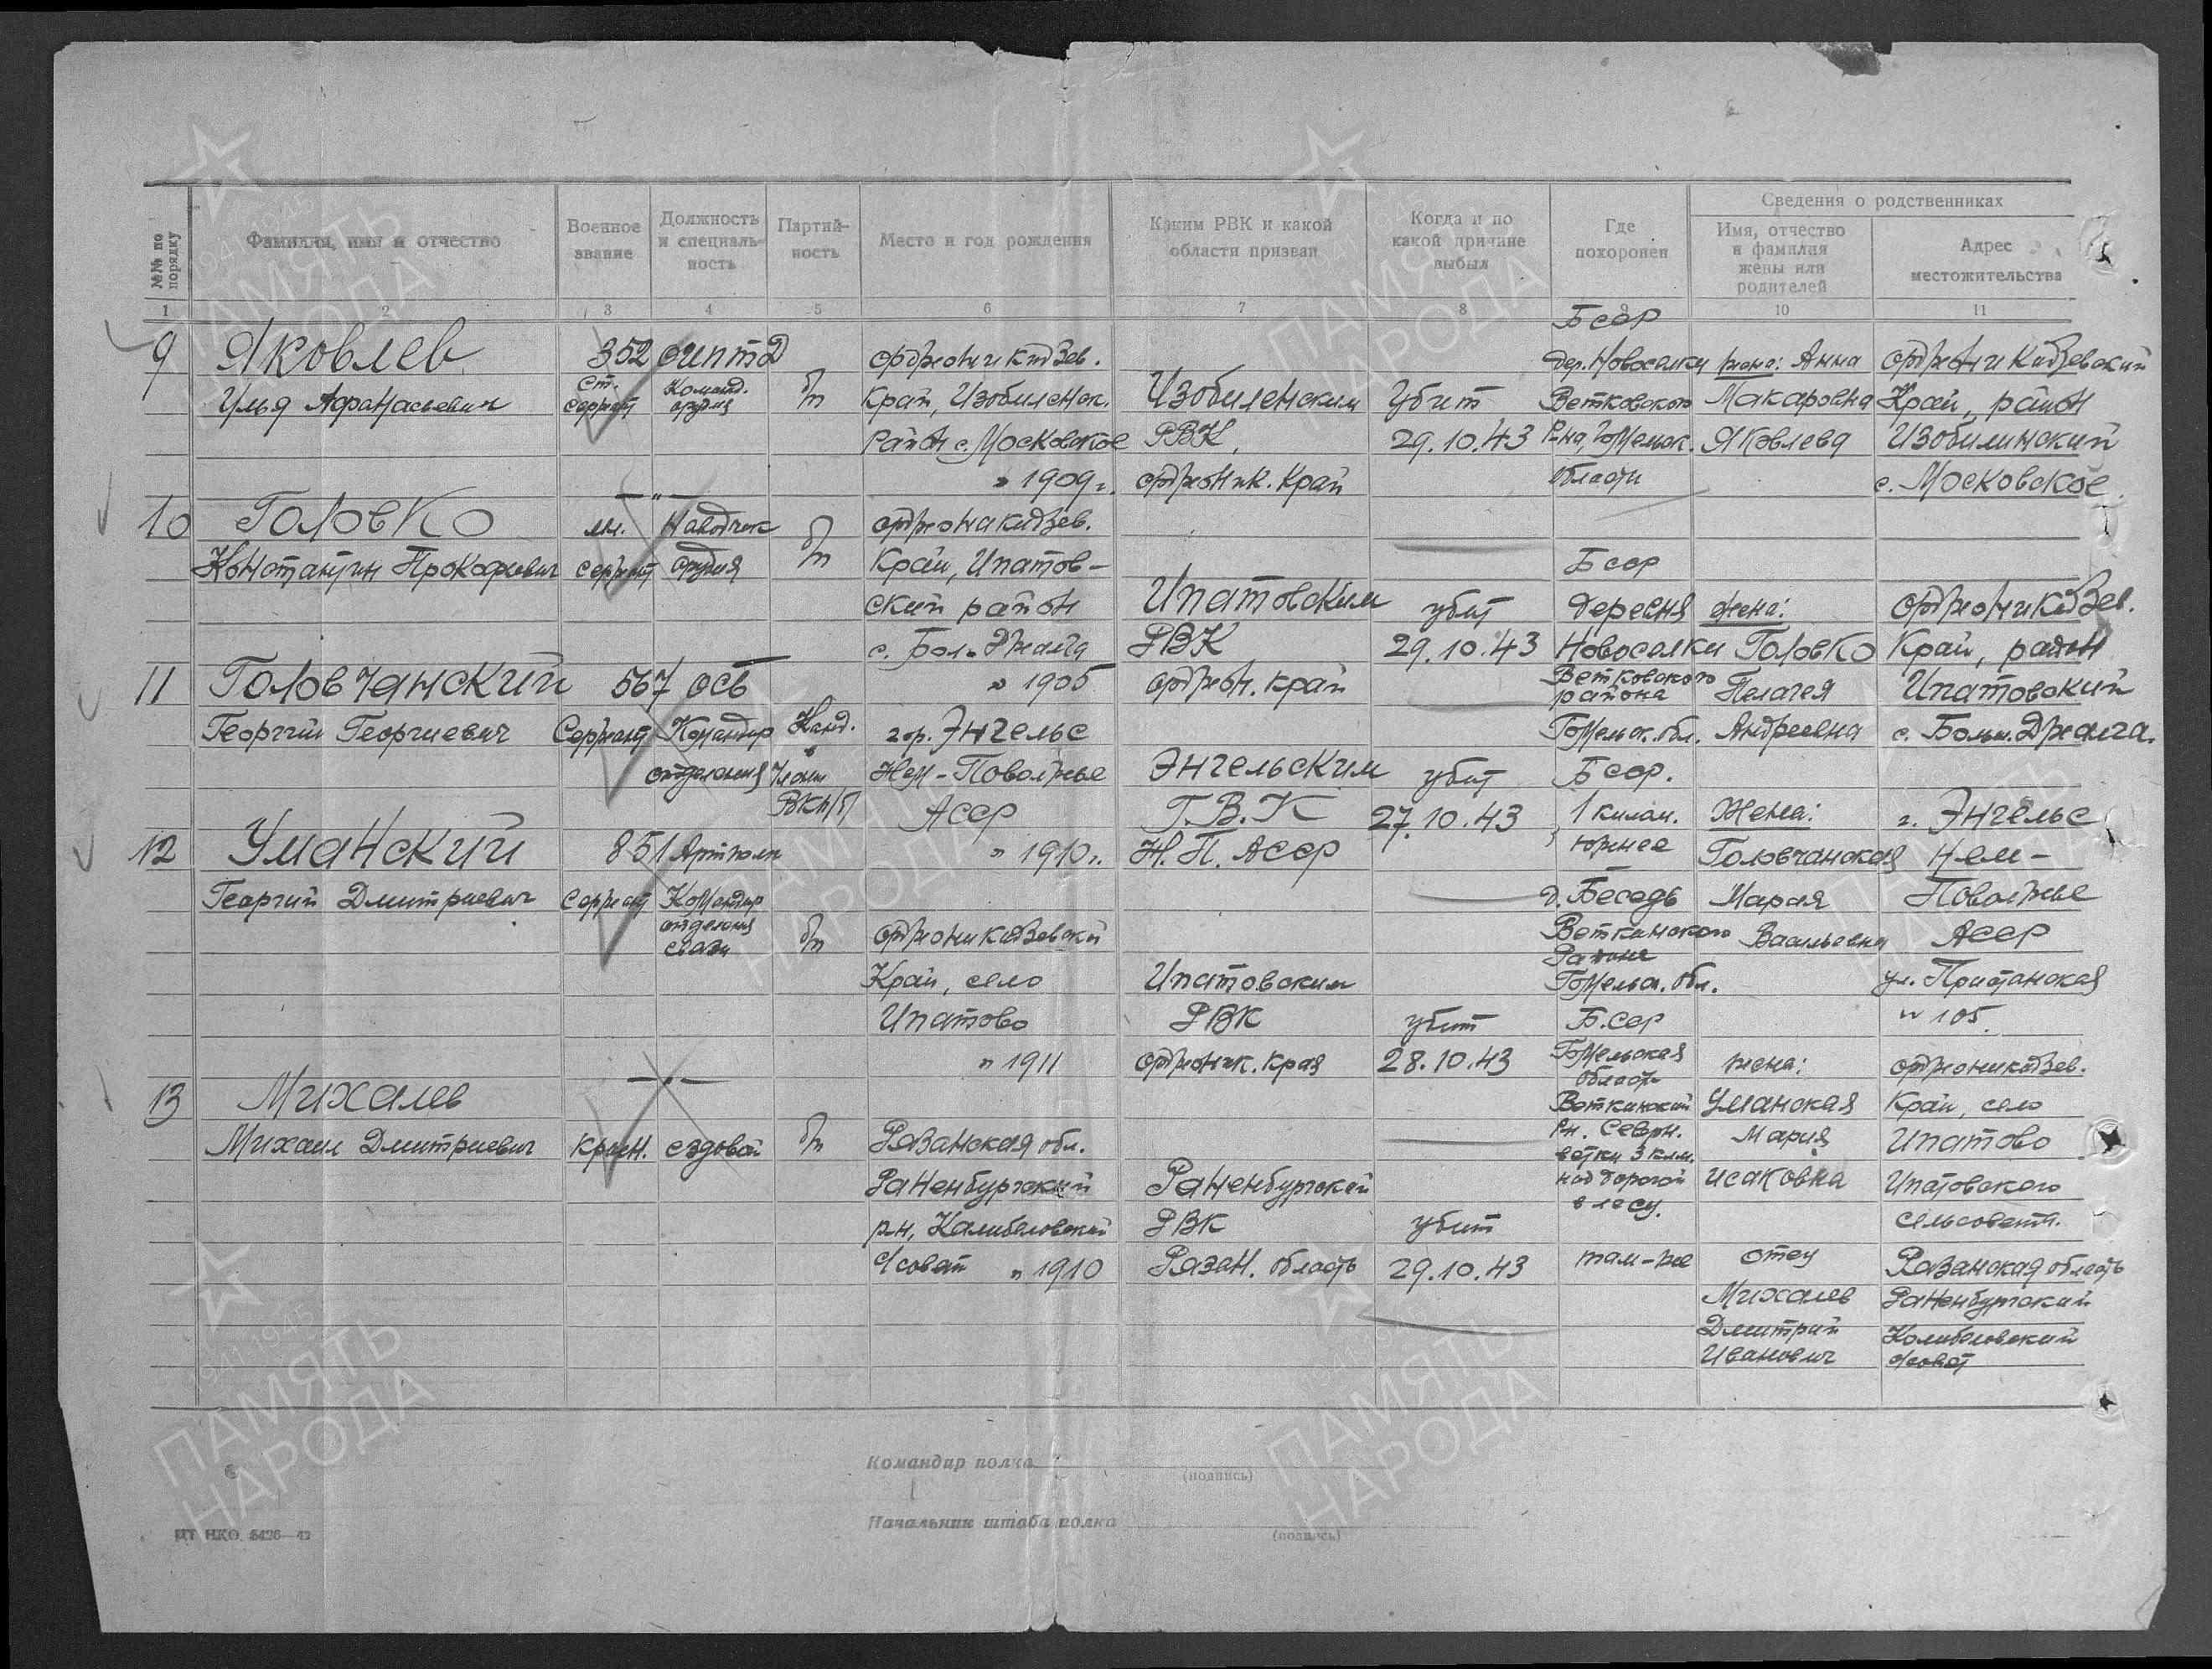 №№ по порядку
Фамилия, имя и отчество
Военное звание
Должность и специальность
Партийность
Место и год рождения
Каким РВК и какой области призван
Когда и по какой причине выбыл
Где похоронен
Сведения о родственниках
Имя, отчество и фамилия жены или родителей
Адрес местожительства
1 2 3 4 5 6 7 8 9 10 11
9 Яковлев
Илья Афанасьевич
352 оиптД
Ст. сержант
Команд. орудия
б/п
Орджоникидзев.
Край, Изобиленск.
район с. Московское
" 1909 г.
Изобиленским
РВК,
Орджоник. Край
Убит
29.10.43
Бсср
дер. Новоселки
Ветковского
р-на, Гомельск.
области
жена: Анна
Макаровна
Яковлева
Орджоникидзевский
Край, район
Изобилинский
с. Московское.
10 Головко
Константин Прокофьевич
—"—
мл. сержант
Наводчик
орудия
б/п
Орджоникидзев.
Край, Ипатов-
ский район
с. Бол. Джалга
" 1905
Ипатовским
РВК
Орджон. край
убит
29.10.43
Бсср
деревня
Новоселки
Ветковского
района
Гомельск. обл.
жена:
Головко
Пелагея
Андреевна
Орджоникидзев.
Край, район
Ипатовский
с. Больш. Джалга.
11 Головчанский
Георгий Георгиевич
567 осб
Сержант
Командир
отделения
Канд.
в члены
ВКП/б/
гор. Энгельс
Нем-Поволжье
АССР
" 1910 г.
Энгельским
Г.В.К
Н.П. АССР
убит
27.10.43
Бсср.
1 килом.
южнее
д. Беседь
Веткинского
Района
Гомельск. обл.
Жена:
Головчанская
Мария
Васильевна
г. Энгельс
Нем-
Поволжье
АССР
ул. Пристанская
№ 105.
12 Уманский
Георгий Дмитриевич
851 Артполк
Сержант
Командир
отделения
связи
б/п
Орджоникидзевский
Край, село
Ипатово
" 1911
Ипатовским
РВК
Орджоник. края
убит
28.10.43
Б.сср
Гомельская
область
Веткинский
рн. Северн.
ветки 3 клм.
над дорогой
в лесу.
жена:
Уманская
Мария
Исаковна
Орджоникидзев.
Край, село
Ипатово
Ипатовского
сельсовета.
13 Михалев
Михаил Дмитриевич
—"—
Красн.
ездовой
б/п
Рязанская обл.
Раненбургский
рн, Калибеловский
с/совет " 1910
Раненбургский
РВК
Рязан. область
убит
29.10.43
там-же
отец
Михалев
Дмитрий
Иванович
Рязанская область
Раненбургский
Калибеловский
с/совет
Командир полка
(подпись)
Начальник штаба полка
(подпись)
ЦТ НКО. 5426—42
1941 1945
ПАМЯТЬ
НАРОДА